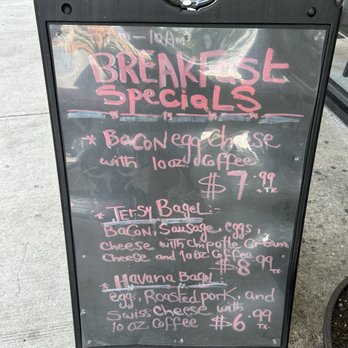 - 10Am
BREAKFast
SpeciaLS
* BacON egg cheese
with 10oz coffee
$7.99
+TX
* JerSy Bagel:-
Bacon, Sausage, eggs,
cheese with chipotle Cream
Cheese and 10oz coffee
$8.99
TX
* Havana Bagl
egg, Roasted pork, and
Swiss cheese with
10 oz coffee $6.99
TX